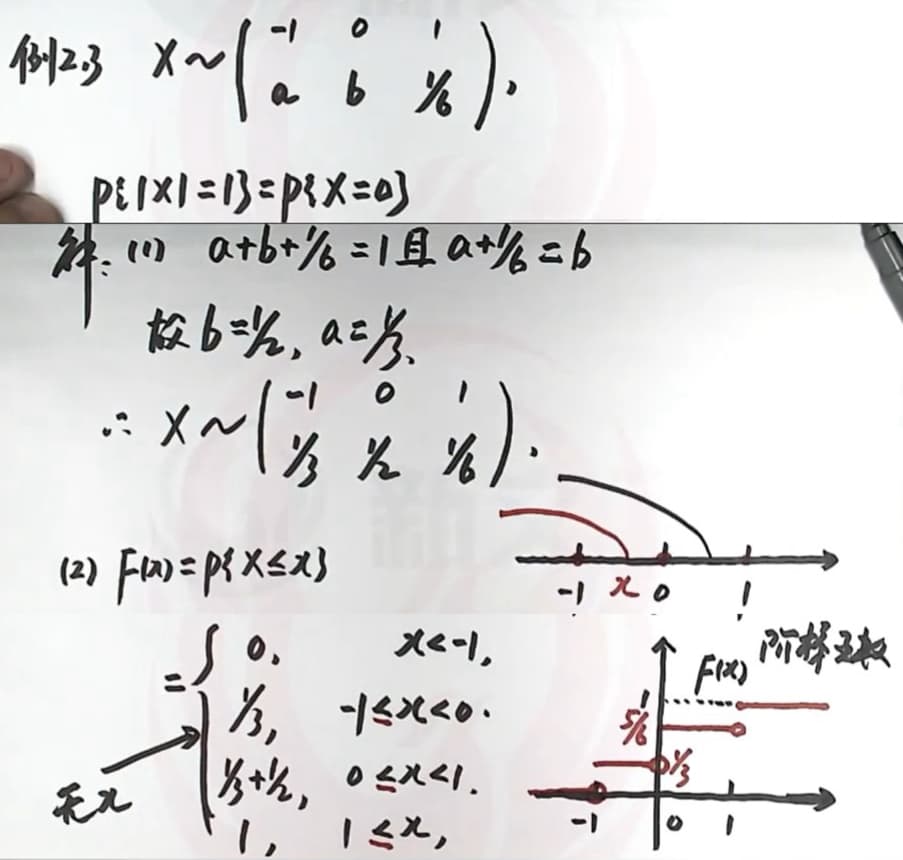 例2.3 X~(-1 0 1
a b 1/6),
P{|X|=1}=P{X=0}
解:(1) a+b+1/6=1且a+1/6=b
故b=1/2, a=1/3.
∴ X~(-1 0 1
1/3 1/2 1/6).
(2) F(x)=P{X≤x}
-1 x 0 1
={0, x<-1,
1/3, -1≤x<0.
1/3+1/2, 0≤x<1.
1, 1≤x,
无x
F(x) 阶梯函数
1
5/6
1/3
-1 0 1